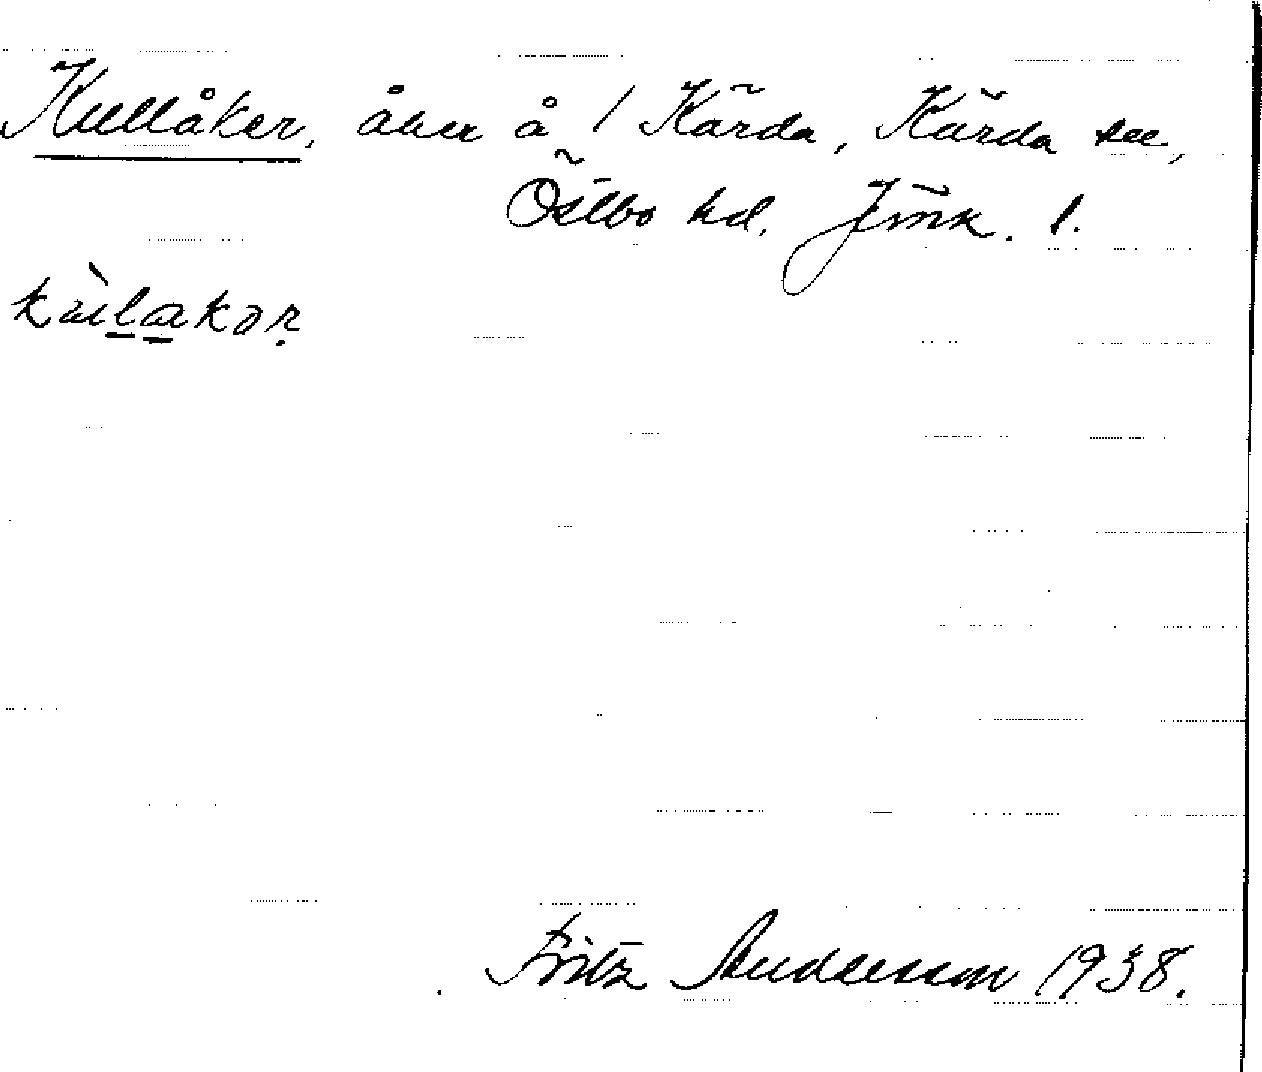 Kullåker, åker å 1 Kärda, Kärda sn,
Östbo hd. Jönk. l.
Fritz Andersson 1938.